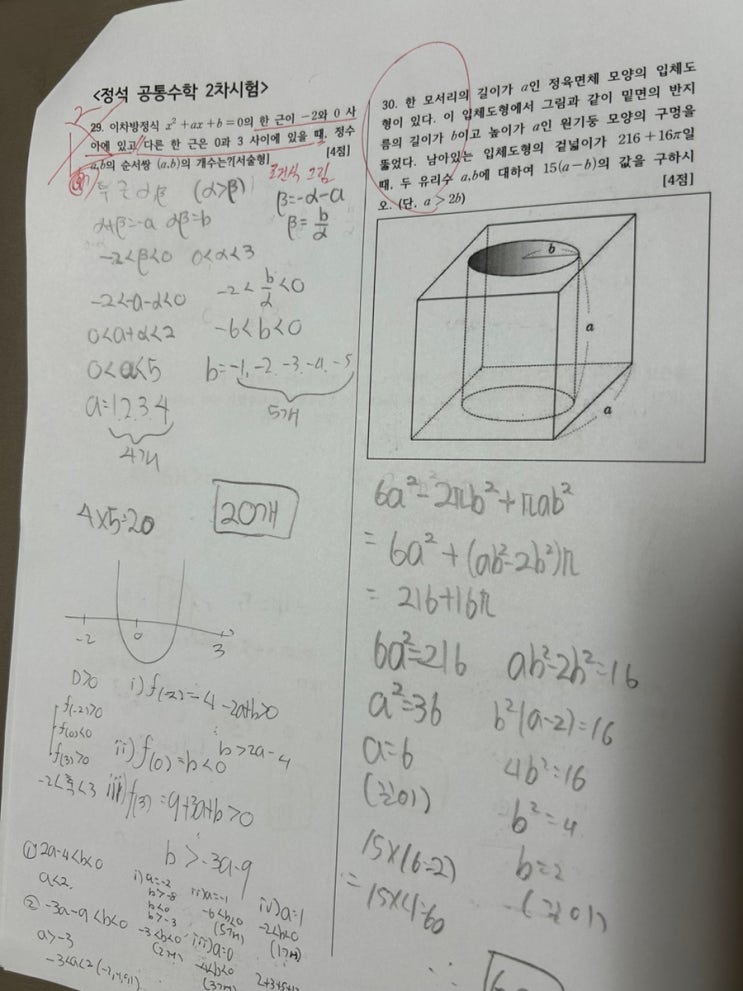 <정석 공통수학 2차시험>
29. 이차방정식 x²+ax+b=0의 한 근이 -2와 0 사
이에 있고 다른 한 근은 0과 3 사이에 있을 때, 정수
a,b의 순서쌍 (a,b)의 개수는?[서술형] [4점]
두 근 α, β (α>β)
α+β=-a αβ=b
β=-α-a
β=b/α
-2<β<0 0<α<3
-2<-a-α<0 -2<b/α<0
0<a+α<2 -6<b<0
0<a<5 b=-1,-2,-3,-4,-5
a=1,2,3,4 5개
4개
4×5=20 20개
-2 0 3
D>0 i) f(-2)=4-2a+b>0
f(-2)>0
f(0)<0 b>2a-4
f(3)>0 ii) f(0)=b<0
-2<축<3 iii) f(3)=9+3a+b>0
b>-3a-9
① 2a-4<b<0
a<2
② -3a-9<b<0
a>-3
-3<a<2
i) a=-2
b>-8
b<0
b>-3
-3<b<0
(2개)
ii) a=-1
-6<b<0
(5개)
iii) a=0
-4<b<0
(3개)
iv) a=1
-2<b<0
(1개)
30. 한 모서리의 길이가 a인 정육면체 모양의 입체도
형이 있다. 이 입체도형에서 그림과 같이 밑면의 반지
름의 길이가 b이고 높이가 a인 원기둥 모양의 구멍을
뚫었다. 남아있는 입체도형의 겉넓이가 216+16π일
때, 두 유리수 a,b에 대하여 15(a-b)의 값을 구하시
오. (단, a>2b) [4점]
b
a
a
6a²-2πb²+πab²
=6a²+(ab²-2b²)π
=216+16π
6a²=216 ab²-2b²=16
a²=36 b²(a-2)=16
a=6 4b²=16
(길이) b²=4
15×(6-2) b=2
=15×4=60 (길이)
∴